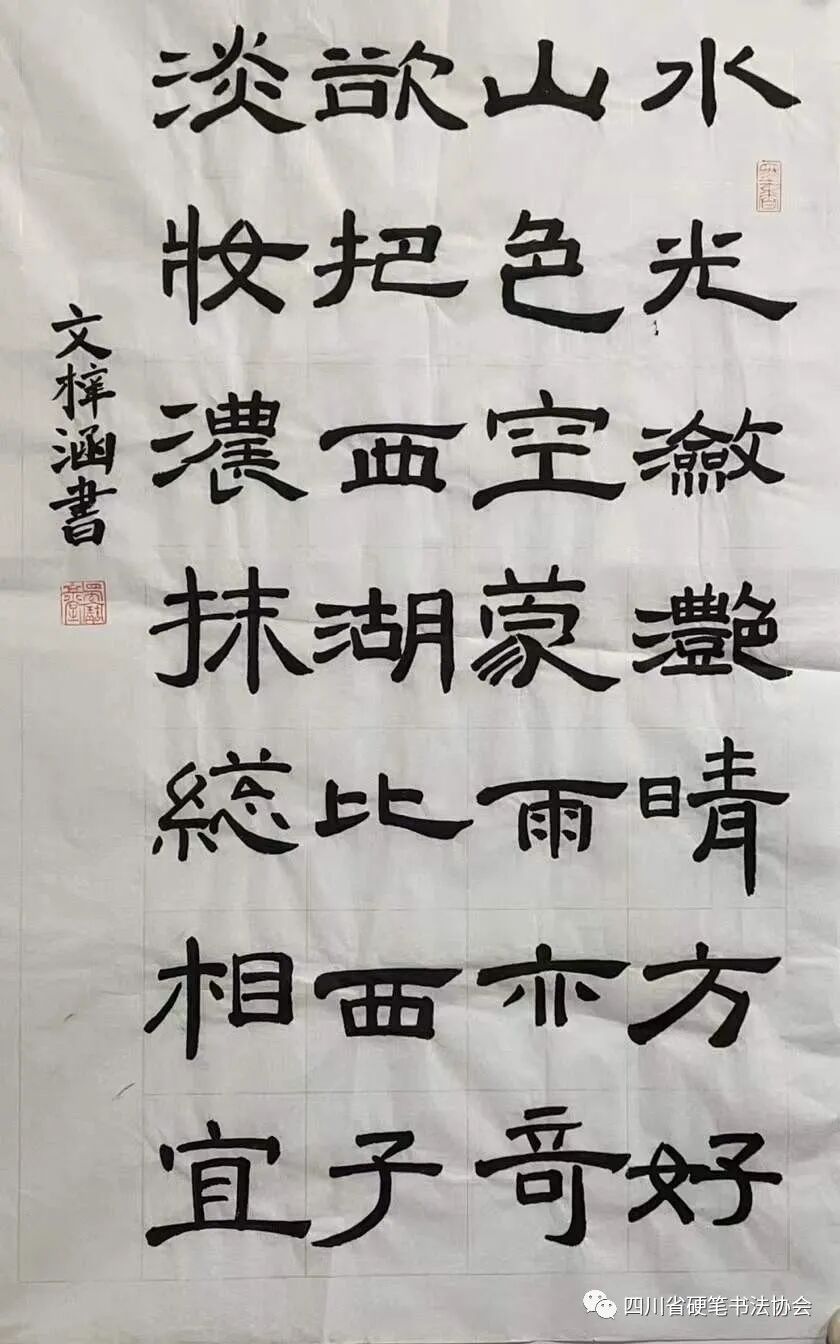 水光瀲灩晴方好
山色空蒙雨亦奇
欲把西湖比西子
淡妝濃抹総相宜
文梓涵書
四川省硬笔书法协会